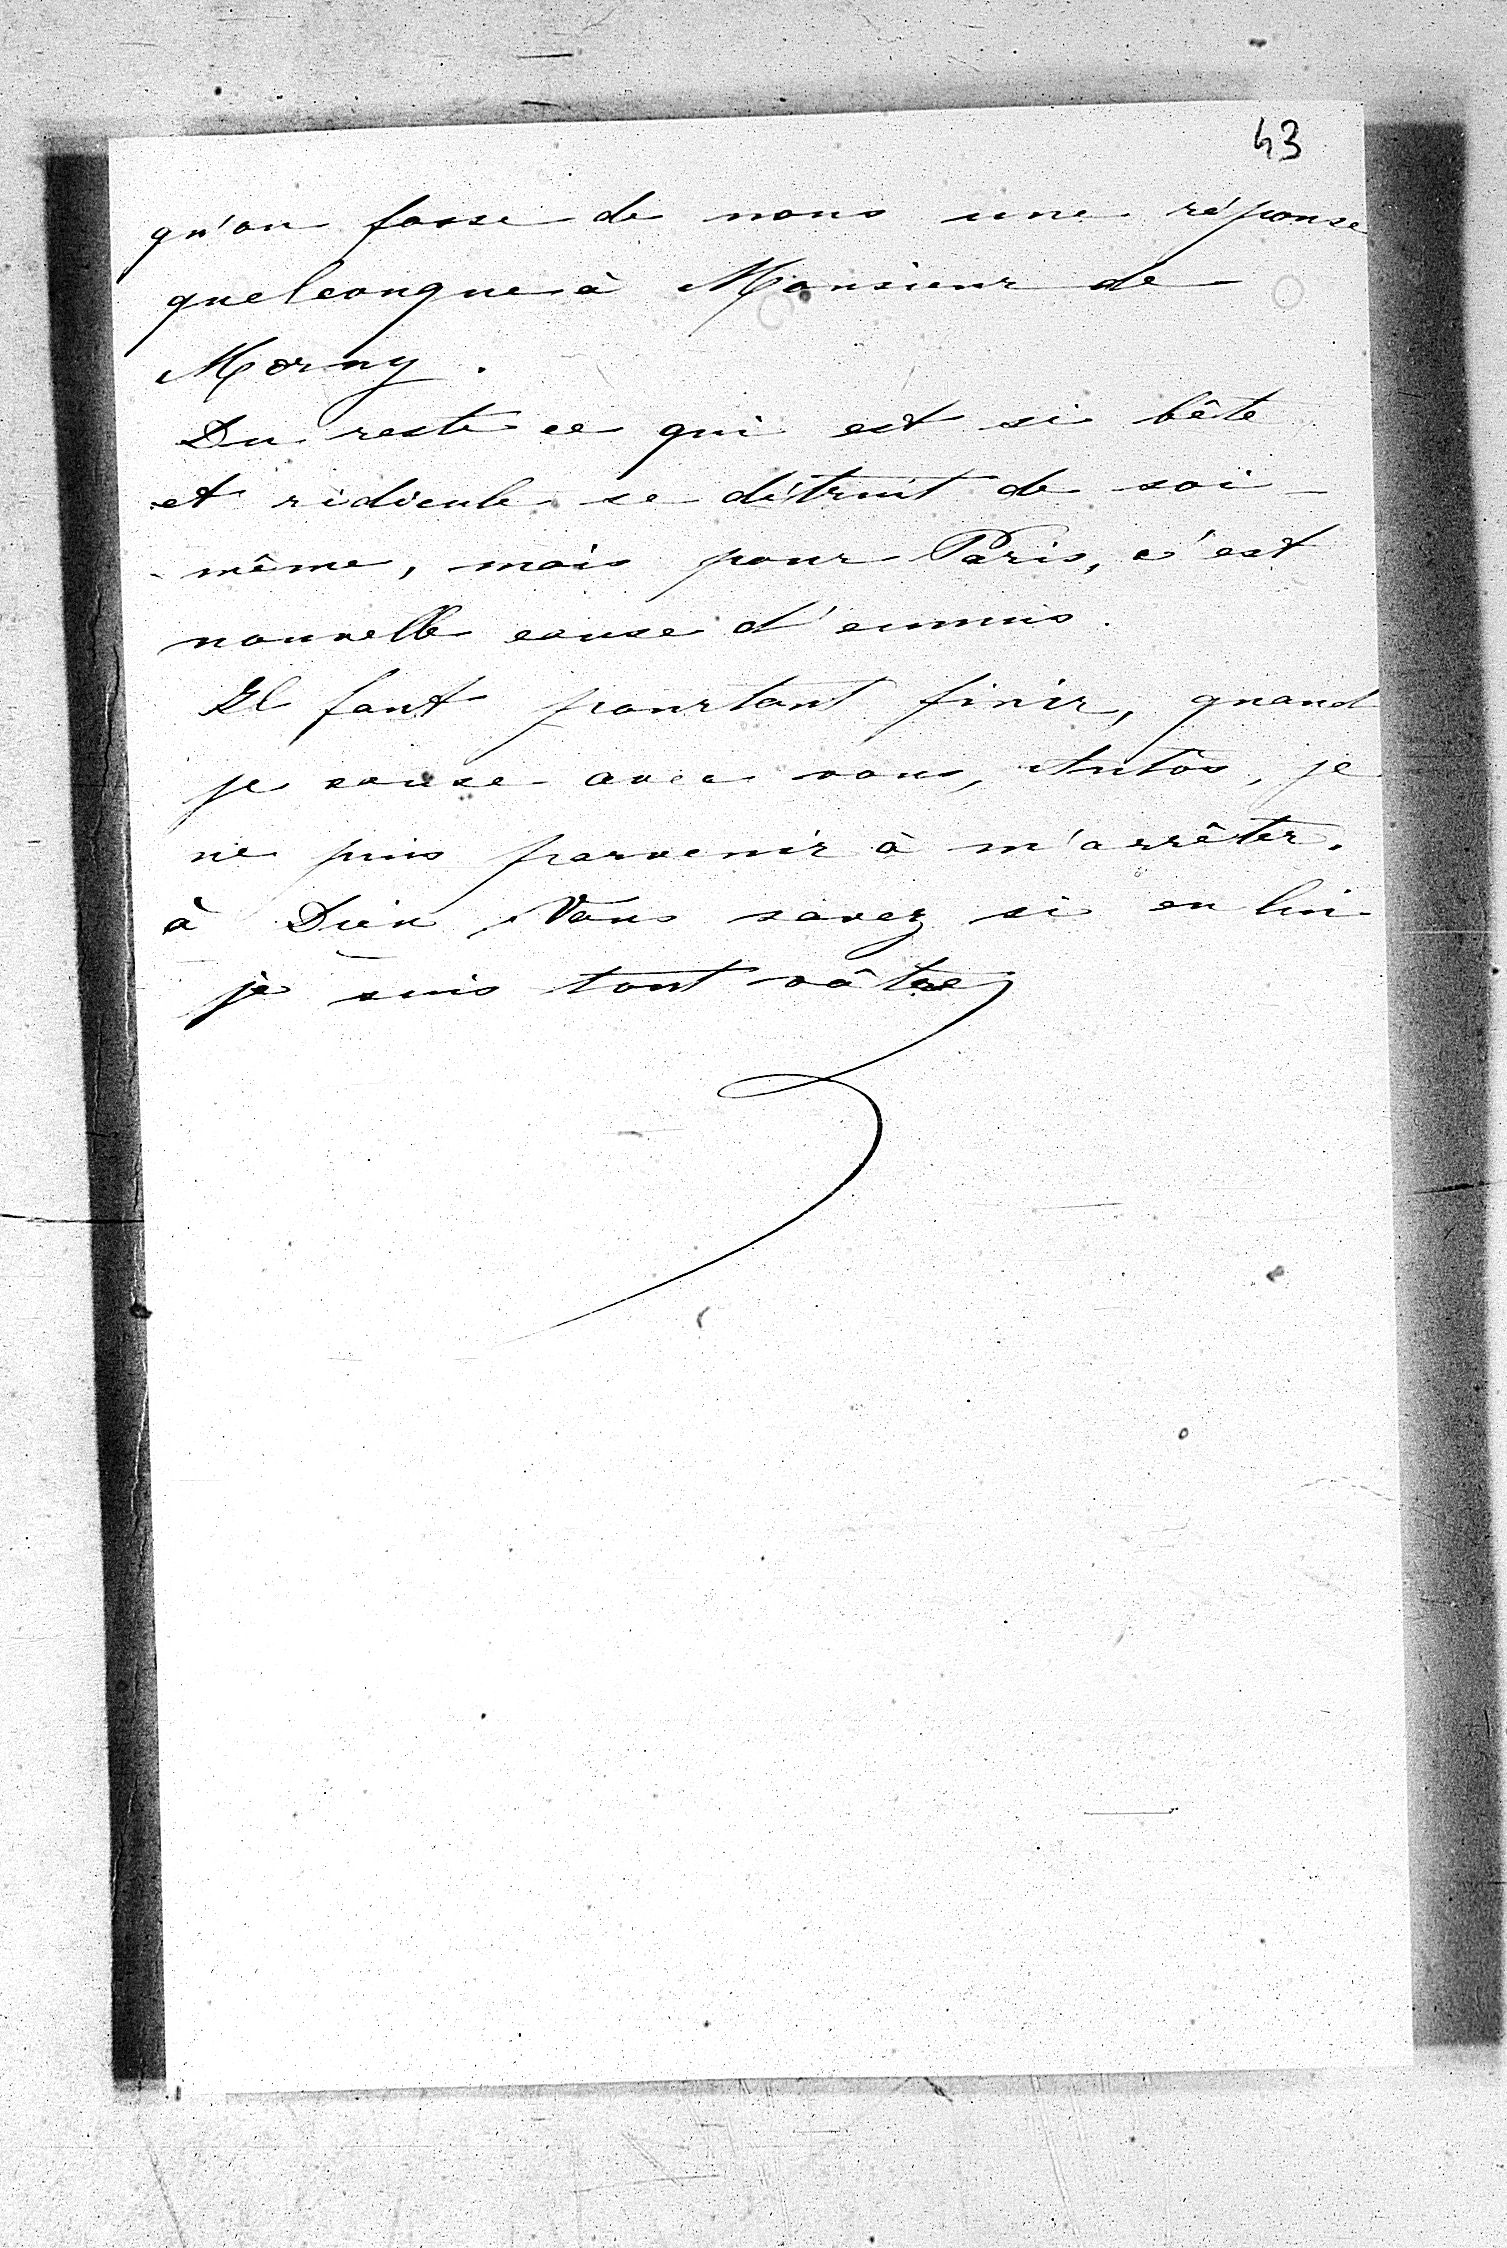 43
qu'on fasse de nous une réponse
quelconque à Monsieur de
Morny.
Du reste ce qui est si bête
et ridicule se détruit de soi-
-même, mais pour Paris, c'est
nouvelle cause d'ennuis.
Il faut pourtant finir, quand
je cause avec vous, Antôs, je
ne puis parvenir à m'arrêter.
à Dieu, Vous savez si en lui
je suis tout vôtre